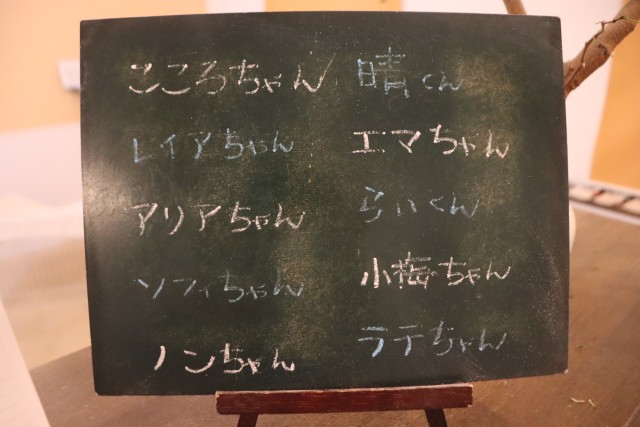 こころちゃん
レイアちゃん
アリアちゃん
ソフィちゃん
ノンちゃん
晴くん
エマちゃん
らいくん
小梅ちゃん
ラテちゃん